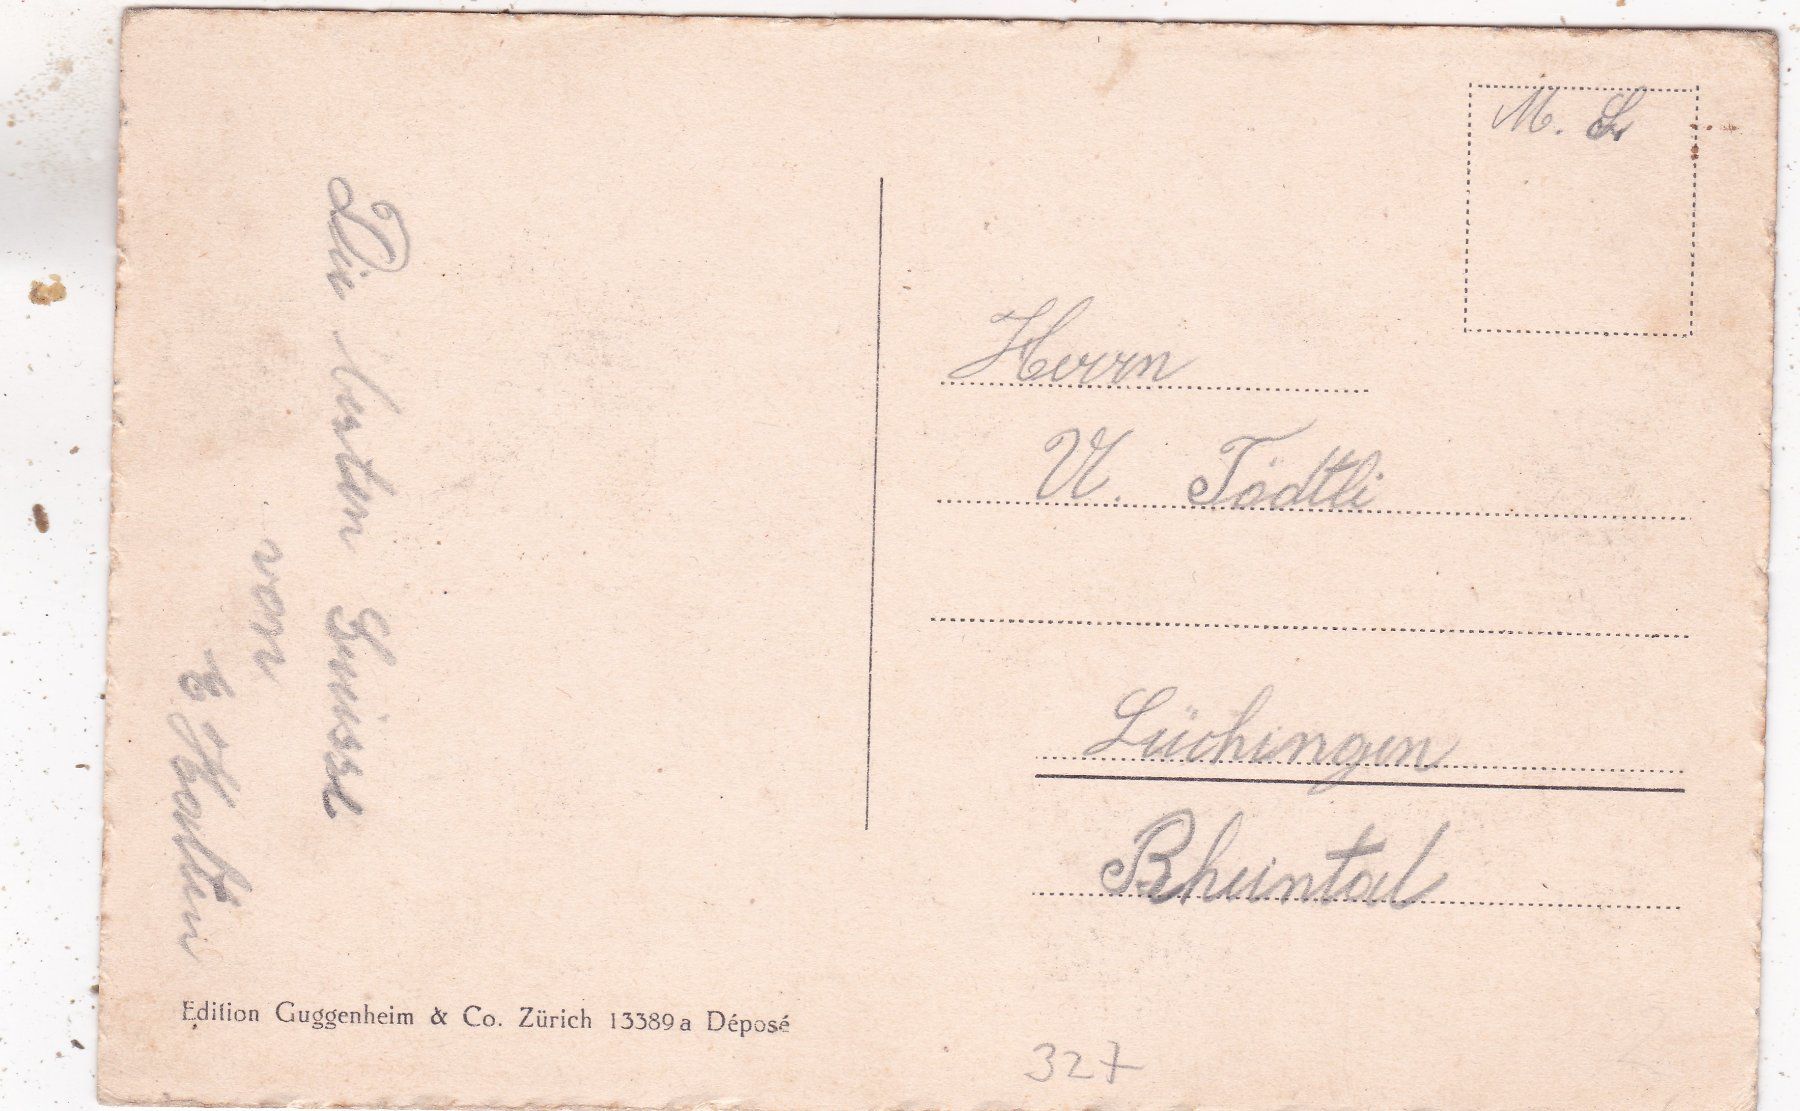 Die besten Grüsse
von
E
M. S
Herrn
U. Tödtli
Lüchingen
Rheintal
Edition Guggenheim & Co. Zürich 13389a Déposé
327